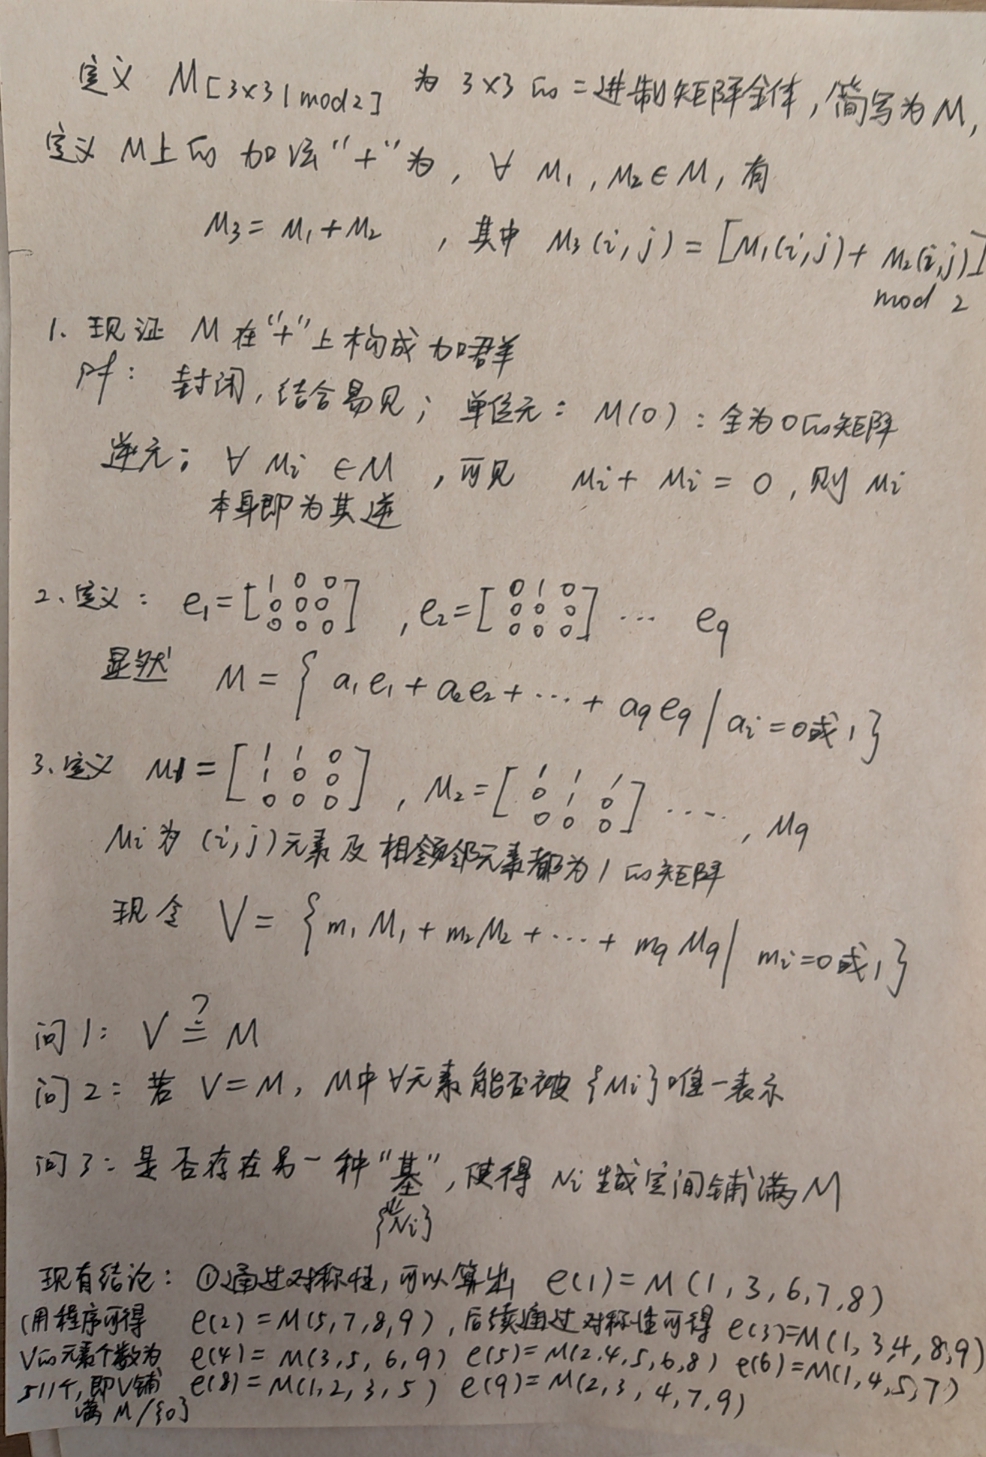 定义 M[3×3|mod2] 为 3×3 的二进制矩阵全体,简写为M,
定义 M上的加法"+"为, ∀ M₁, M₂∈M, 有
M₃ = M₁+M₂ , 其中 M₃(i,j) = [M₁(i,j)+ M₂(i,j)]
mod 2
1. 现证 M在"+"上构成加群
pf: 封闭,结合易见; 单位元: M(0): 全为0的矩阵
逆元: ∀ Mi ∈M ,可见 Mi + Mi = 0 ,则 Mi
本身即为其逆
2、定义: e₁=[1 0 0
0 0 0
0 0 0] , e₂=[0 1 0
0 0 0
0 0 0] … e₉
显然 M = { a₁e₁ + a₂e₂ + … + a₉e₉ | ai = 0或1}
3、定义 M₁=[1 1 0
1 0 0
0 0 0] , M₂=[1 1 1
0 1 0
0 0 0] …. , M₉
Mi为 (i,j)元素及相邻元素都为1的矩阵
现令 V = {m₁M₁ + m₂M₂ + … + m₉M₉ | mi=0或1}
问1: V ≟ M
问2: 若 V=M, M中∀元素能否被{Mi}唯一表示
问3: 是否存在另一种"基",使得 Ni 生成空间铺满M
{Ni}
现有结论: ①通过对称性,可以算出 e(1)=M(1,3,6,7,8)
(用程序可得 e(2)=M(5,7,8,9),后续通过对称性可得 e(3)=M(1,3,4,8,9)
V的元素个数为 e(4)=M(3,5,6,9) e(5)=M(2,4,5,6,8) e(6)=M(1,4,5,7)
511个,即V铺 e(8)=M(1,2,3,5) e(9)=M(2,3,4,7,9)
满M/{0}